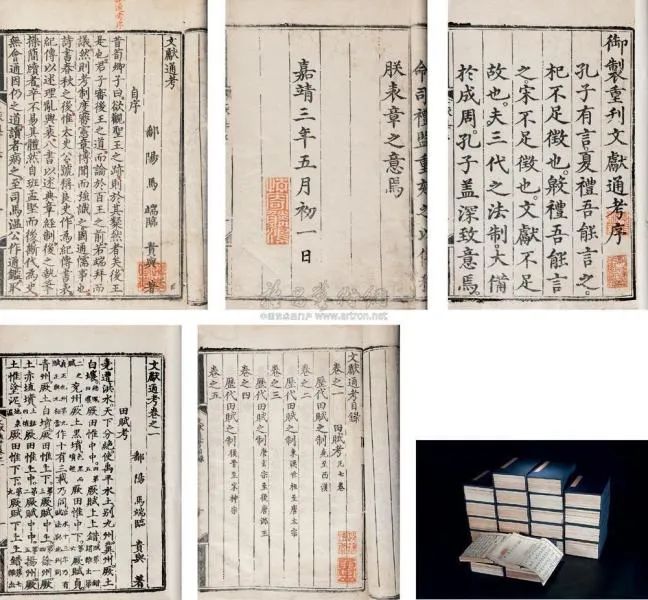 文獻通考
自序
鄱陽馬端臨貴與著
昔荀卿子曰欲觀聖王之跡則於其粲然者矣後王
是也君子審後王之道而論於百王之前若端拜而
議然則考制度審憲章博聞而強識之固通儒事也
詩書春秋之後惟太史公號稱良史作為紀傳書表
紀傳以述理亂興衰八書以述典章經制後之執筆
操簡牘者卒不易其體然自班孟堅而後斷代為史
無會通因仍之道讀者病之至司馬溫公作通鑑取
命司禮監重刻之以傳
朕表章之意焉
嘉靖三年五月初一日
御製重刊文獻通考序
孔子有言夏禮吾能言之。
杞不足徵也。殷禮吾能言
之宋不足徵也。文獻不足
故也。夫三代之法制。大備
於成周。孔子蓋深致意焉。
www.artron.net
文獻通考卷之一
鄱陽馬端臨貴與著
田賦考
堯遭洪水天下分絕使禹平水土別九州冀州厥土
白壤厥田惟中中厥賦上上錯
兗州厥土黑墳厥田惟中下厥賦貞
作十有三載乃同
青州厥土白墳厥田惟上下厥賦中上徐州厥
土赤埴墳厥田惟上中厥賦中中揚州厥
土惟塗泥厥田惟下下厥賦下上上錯
文獻通考目錄
卷之一 田賦考 凡七卷
歷代田賦之制 堯至西漢
卷之二
歷代田賦之制 東漢世祖至唐太宗
卷之三
歷代田賦之制 唐玄宗至後唐潞王
卷之四
歷代田賦之制 後晉至宋神宗
卷之五